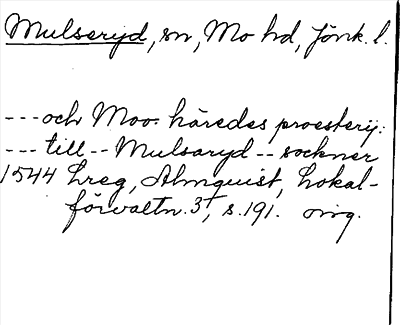 Mulseryd, sn, Mo hd, Jönk. l.
--- och Moo. häredes proesterij:
--- till -- Mulsaryd -- sockner
1544 Lreg, Almquist, Lokal-
förvaltn. 3, s. 191. orig.